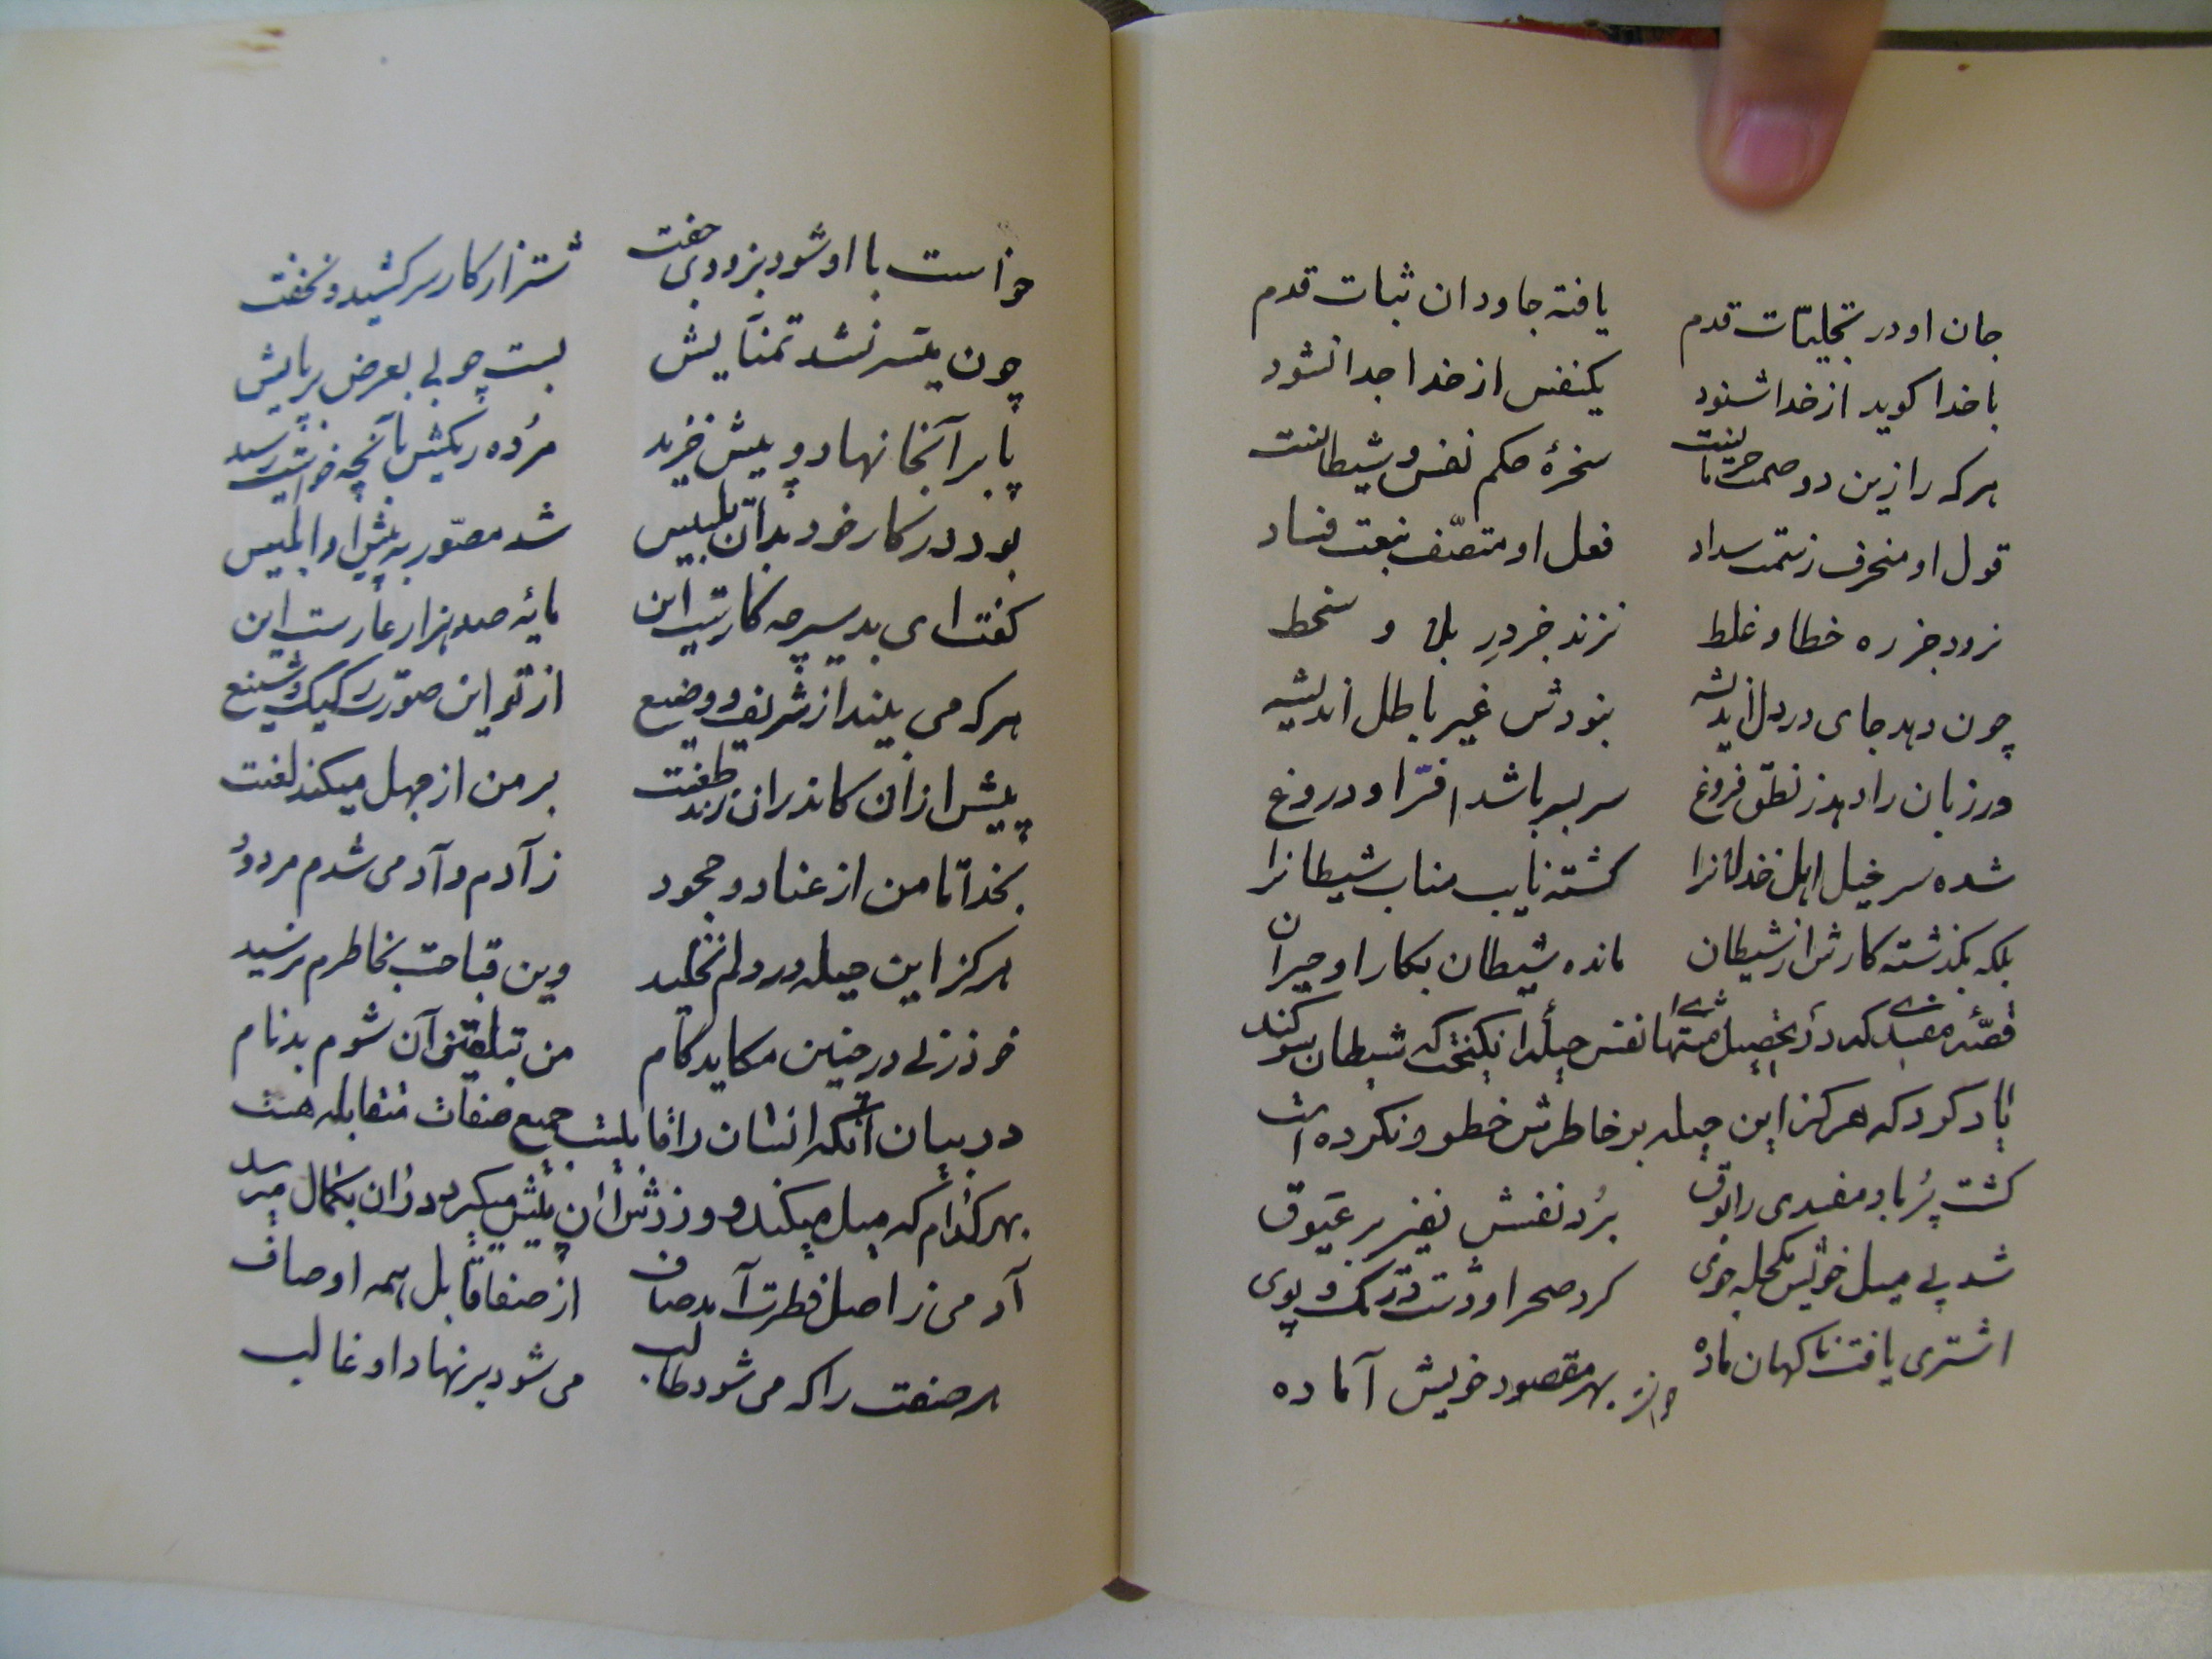 جان او در تجلیّات قدم یافته جاودان ثبات قدم
با خدا کوید از خدا شنود یکنفس از خدا جدا نشود
هرکه را زین دو صمت حرمانست سخرهٔ حکم نفس و شیطانست
قول او منحرف ز سمت سداد فعل او متصّف بنعت فساد
نرود جز ره خطا و غلط نزند جز درِ بلا و سخط
چون دهد جای در دل اندیشه بنودش غیر باطل اندیشه
ور زبان را دهد ز نطق فروغ سر بسر باشد افترا و دروغ
شده سر خیل اهل خذلانرا کشته نایب مناب شیطانرا
بلکه بکذشته کارش از شیطان مانده شیطان بکار او حیران
قصّهٔ مفسدی که در تحصیل مشتهای نفس حیلهٔ انکیخت که شیطان سوکند
یاد کرد که هرکز این حیله بر خاطرش خطور نکرده است
کشت پُر باد مفسدی را بوق بُرد نفسش نفیر بر عیّوق
شد پی میل خویش حیله جوی کرد صحرا و دشت در تک و پوی
اشتری یافت ناکهان ماده بهر مقصود خویش آماده
خواست با او شود بزودی جفت شتر از کار سر کشید و نخفت
چون میسّر نشد تمنّایش بست چوبی بعرض بر پایش
پا بر آنجا نهاد و پیش خزید مرُده ریکش بآنچه خواست رسید
بود در کار خود بدان تلبیس شد مصوّر به پیش او ابلیس
کفت ای بد سیر چه کارست این مایهٔ صد هزار عارست این
هرکه می بیند از شریف و وضیع از تو این صورت رکیک و شنیع
پیش از آن کاندران زند طعنت بر من از جهل میکند لعنت
بخدا تا من از عناد و جحود ز آدم و آدمی شدم مردود
هرکز این حیله در دلم نخلید وین قباحت بخاطرم نرسید
خود زنی در چنین مکاید کام من بتلقین آن شوم بدنام
در بیان آنکه انسان را قابلیت جمیع صفات متقابله هست
بهر کدام که میل میکند و ورزش آن پیش میکیرد در آن بکمال میرسد
آدمی ز اصل فطرت آمد صاف از صفا قابل همه اوصاف
هر صفت را که می شود طالب می شود بر نهاد او غالب